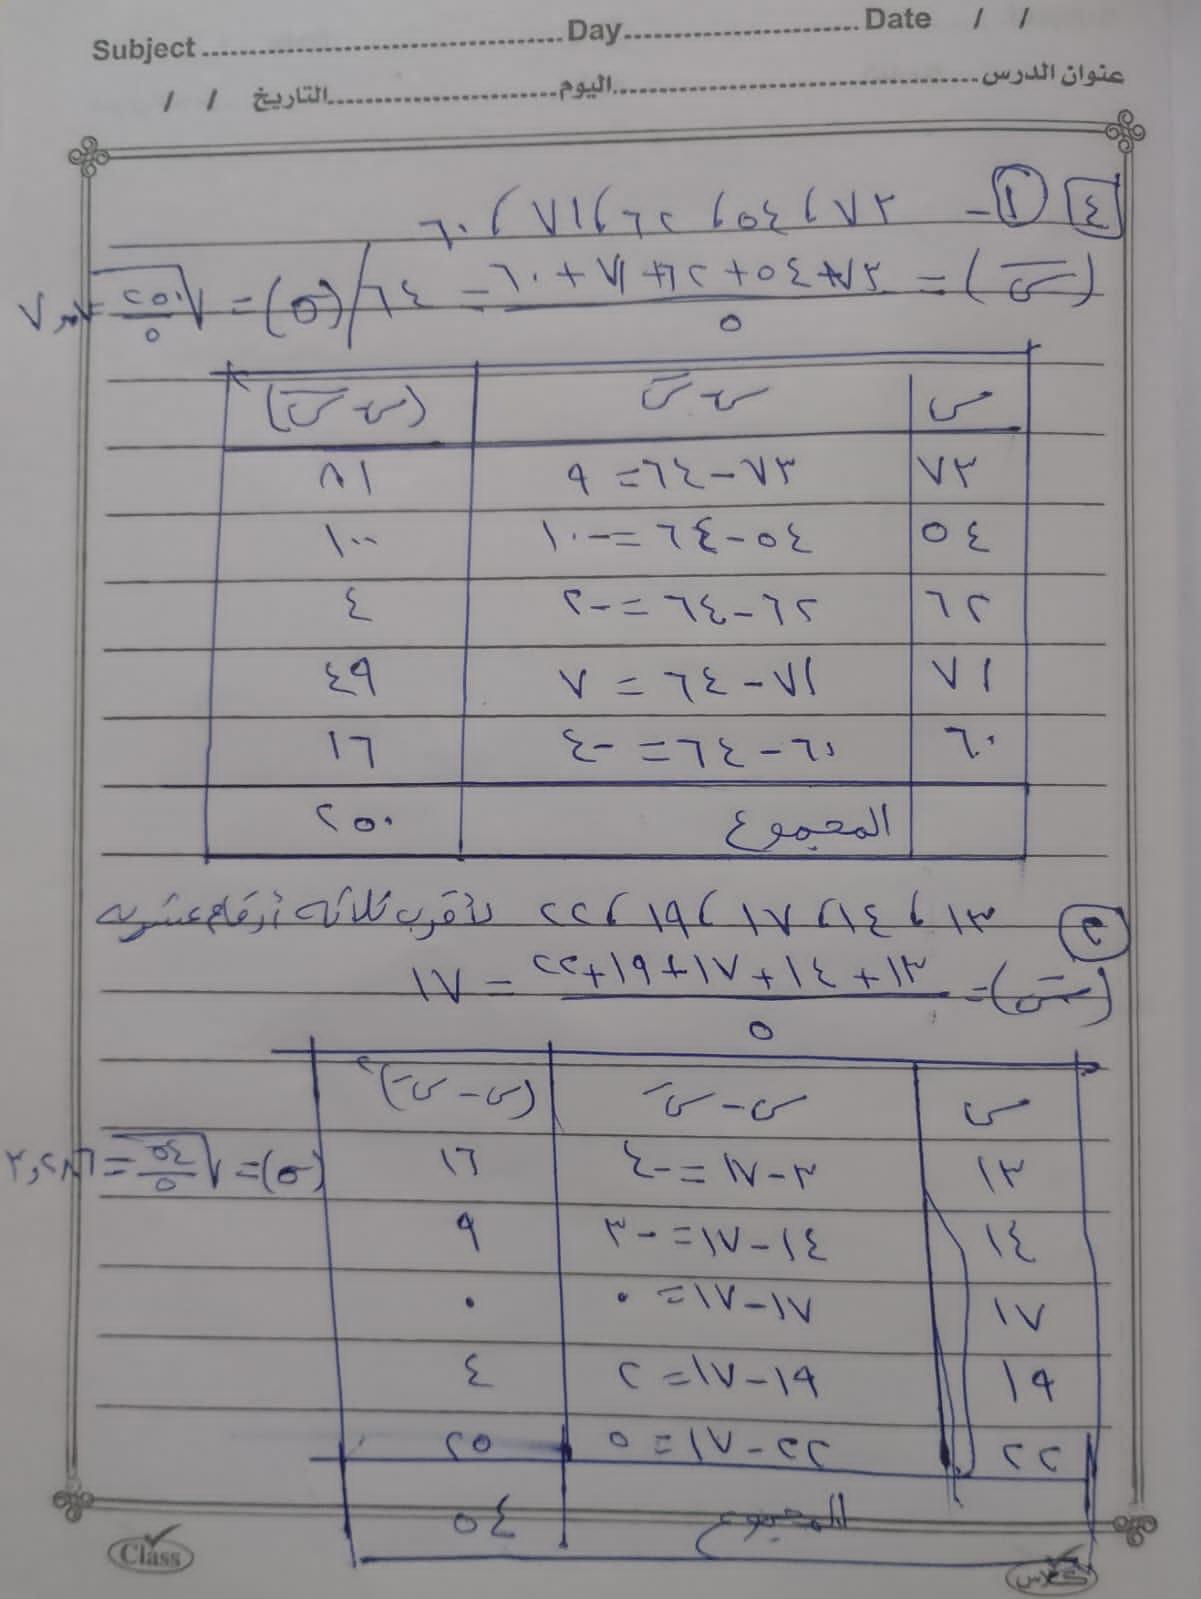 Subject ........ Day ........ Date / /
عنوان الدرس ........ اليوم ........ التاريخ / /
٤ ١- ٧٣ ، ٥٤ ، ٦٢ ، ٧١ ، ٦٠
(س̄) = ٧٣+٥٤+٦٢+٧١+٦٠ / ٥ = ٦٤ / (σ) = √٢٥٠/٥ =
س س-س̄ (س-س̄)٢
٧٣ ٧٣-٦٤=٩ ٨١
٥٤ ٥٤-٦٤=-١٠ ١٠٠
٦٢ ٦٢-٦٤=-٢ ٤
٧١ ٧١-٦٤=٧ ٤٩
٦٠ ٦٠-٦٤=-٤ ١٦
المجموع ٢٥٠
٢ ١٣ ، ١٤ ، ١٧ ، ١٩ ، ٢٢ لأقرب ثلاثة أرقام عشرية
(س̄) = ١٣+١٤+١٧+١٩+٢٢ / ٥ = ١٧
س س-س̄ (س-س̄)٢
١٣ ٣-١٧=-٤ ١٦ (σ) = √٥٤/٥ = ٣,٢٨٦
١٤ ١٤-١٧=-٣ ٩
١٧ ١٧-١٧=٠ ٠
١٩ ١٩-١٧=٢ ٤
٢٢ ٢٢-١٧=٥ ٢٥
المجموع ٥٤
Class كلاس